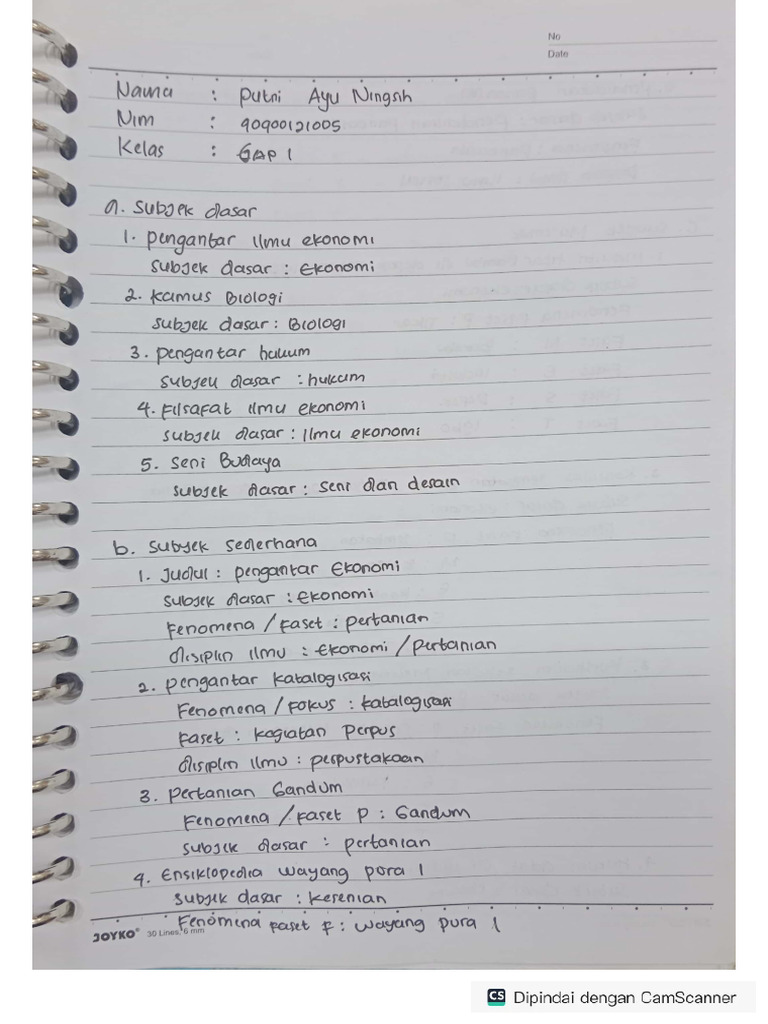 No
Date
Nama : Putri Ayu Ningsih
Nim : 90900121005
Kelas : GAP 1
a. Subjek dasar
1. pengantar ilmu ekonomi
subjek dasar : Ekonomi
2. kamus Biologi
subjek dasar : Biologi
3. pengantar hukum
subjek dasar : hukum
4. Filsafat ilmu ekonomi
subjek dasar : Ilmu ekonomi
5. Seni Budaya
subjek dasar : seni dan desain
b. subjek sederhana
1. Judul : pengantar Ekonomi
subjek dasar : Ekonomi
Fenomena / Faset : pertanian
disiplin ilmu : Ekonomi / Pertanian
2. pengantar katalogisasi
Fenomena / Fokus : katalogisasi
Faset : kegiatan Perpus
disiplin ilmu : perpustakaan
3. Pertanian Gandum
Fenomena / Faset P : Gandum
subjek dasar : pertanian
4. Ensiklopedia wayang pora 1
subjek dasar : kesenian
Fenomena Faset F : wayang pura 1
JOYKO® 30 Lines, 6 mm
CS Dipindai dengan CamScanner